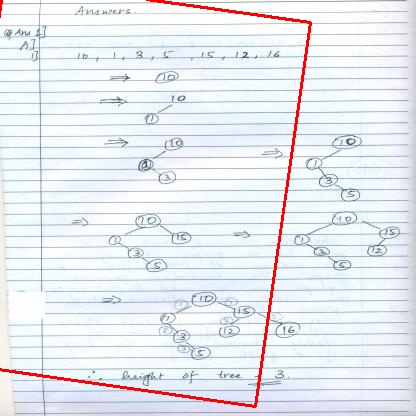 Answers.
Q Ans 1]
A]
1] 10, 1, 3, 5, 15, 12, 16
⇒ 10
⇒ 10
1
⇒ 10
1
3
⇒ 10
1
3
5
⇒ 10
1 15
3
5
⇒ 10
1 15
3 12
5
⇒ 10
1 15
3 12 16
5
∴ height of tree = 3.